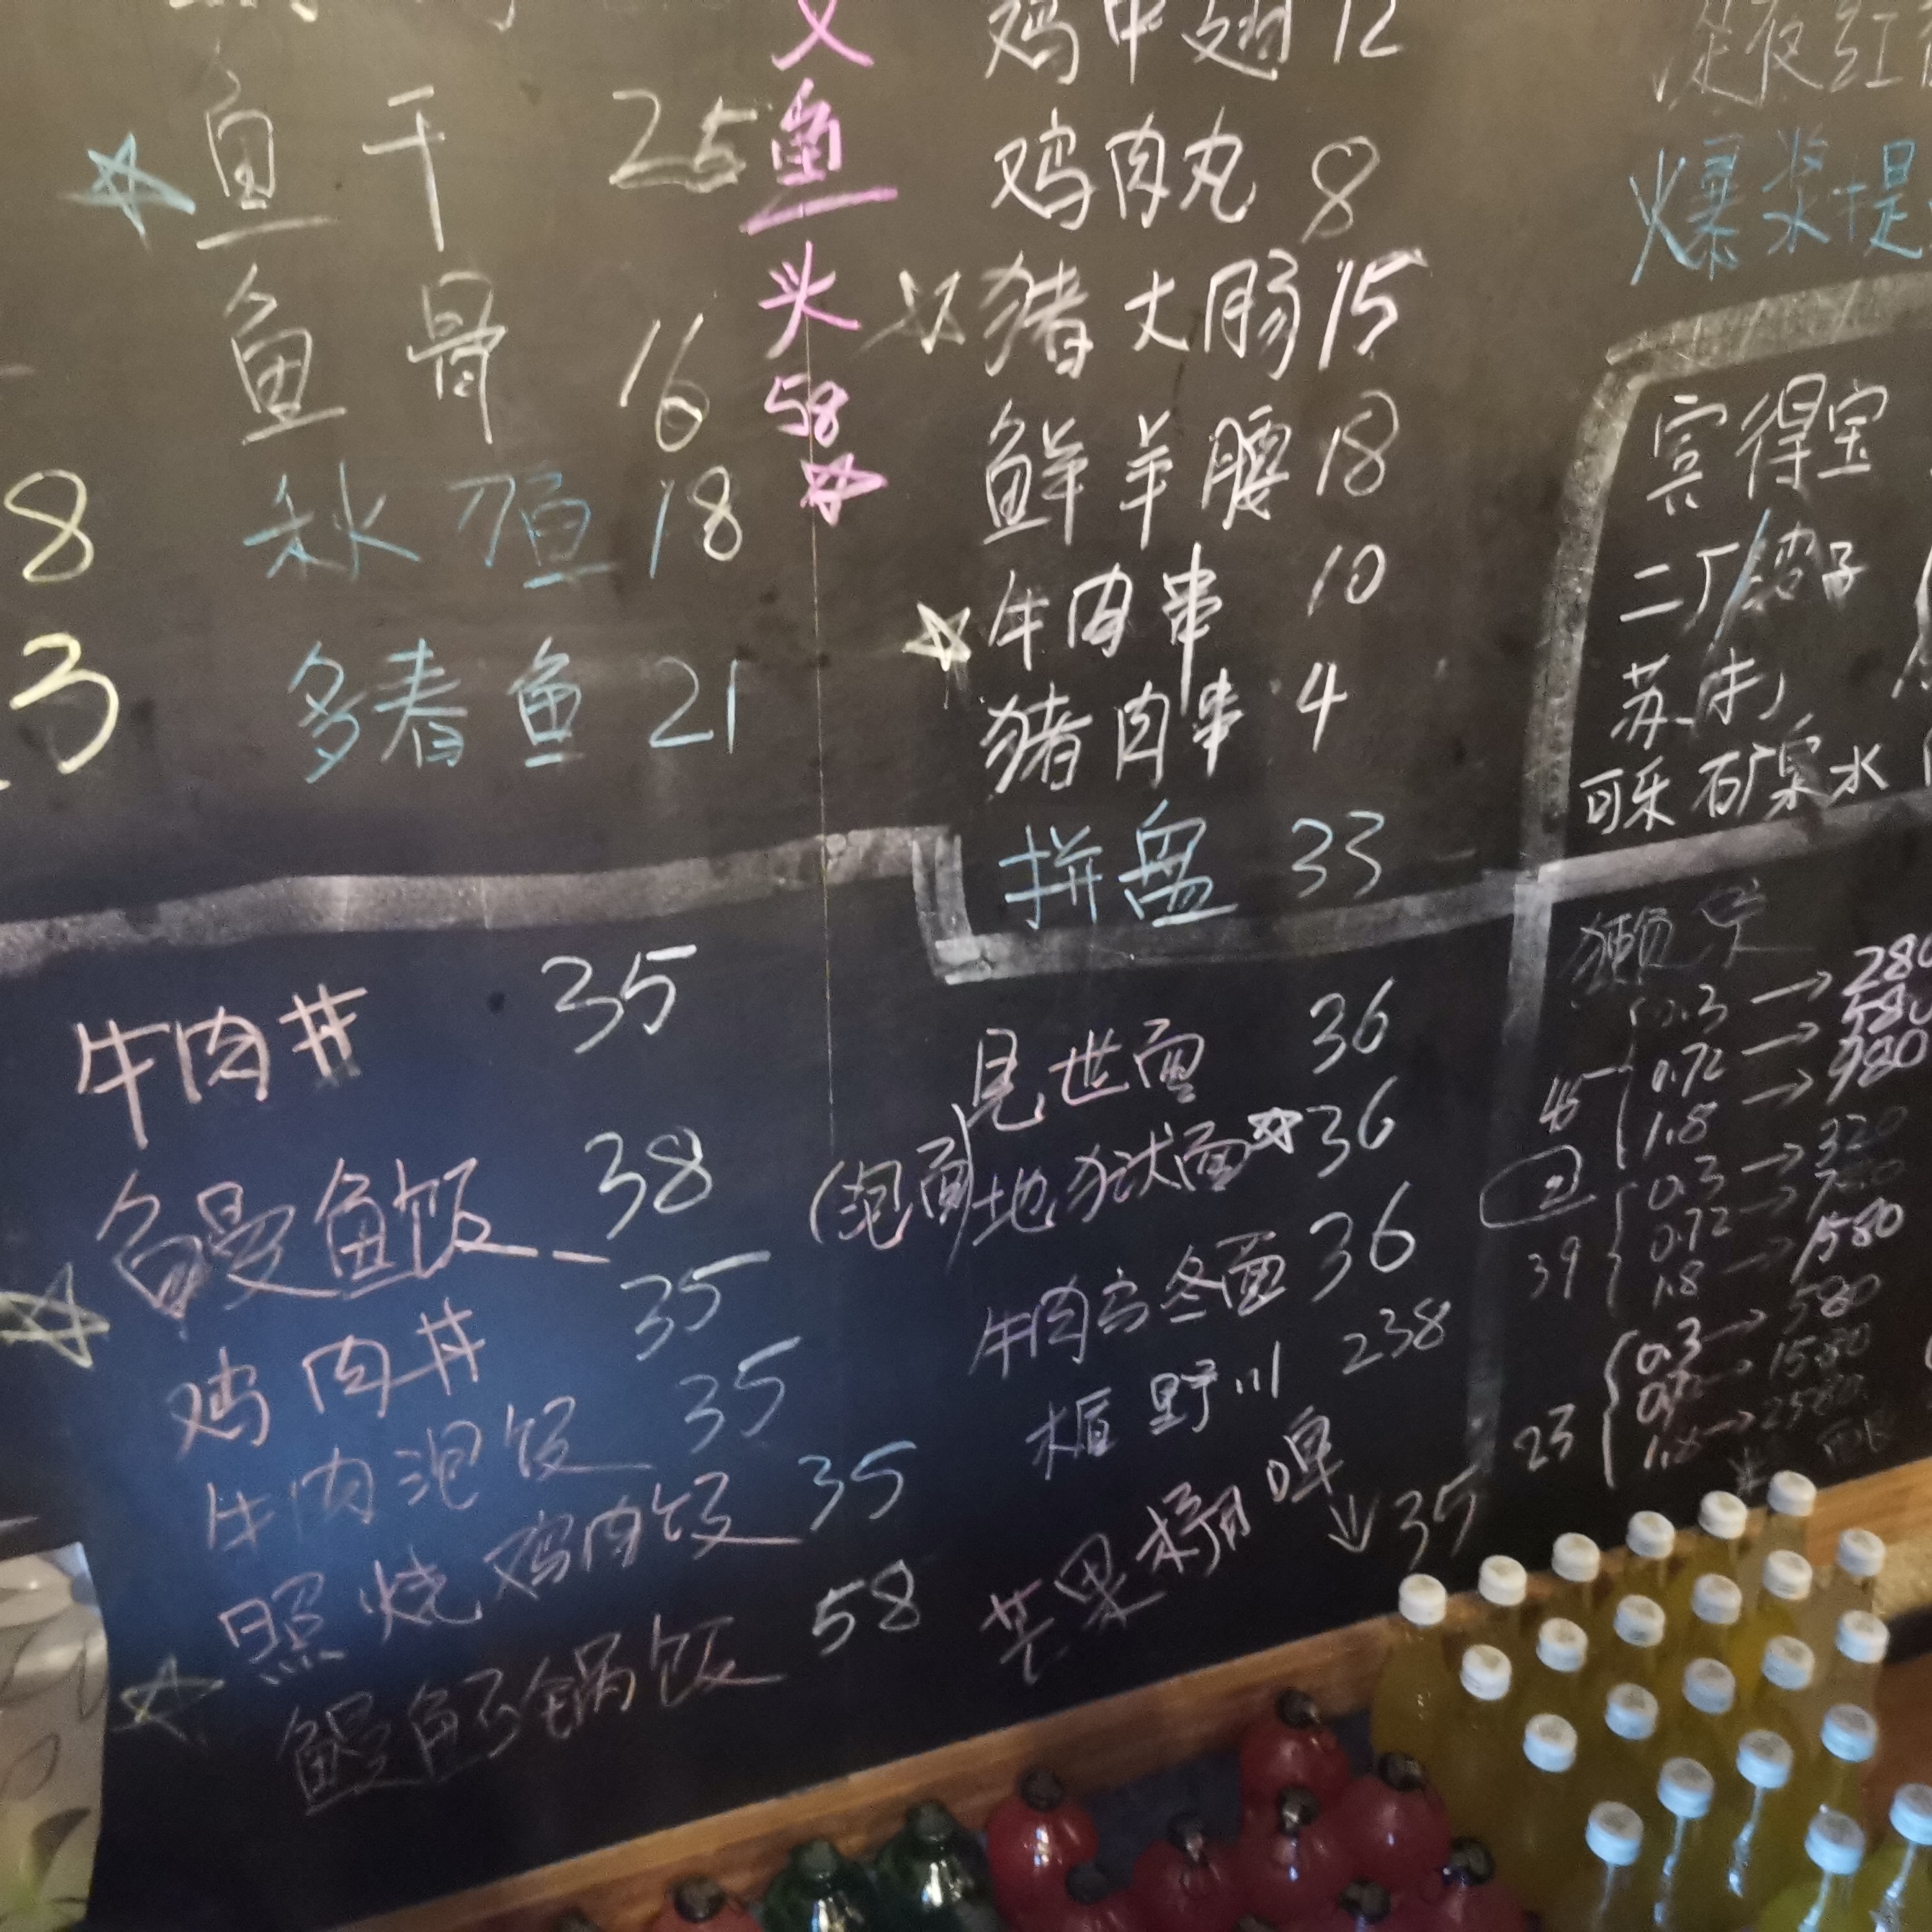 鱼干 25
鱼骨 16
8 秋刀鱼 18
3 多春鱼 21
鱼头 58
鸡中翅 12
鸡肉丸 8
猪大肠 15
鲜羊腰 18
牛肉串 10
猪肉串 4
拼盘 33
爆浆提
宾得宝
二厂
苏打
可乐 矿泉水
牛肉丼 35
鳗鱼饭 38
鸡肉丼 35
牛肉泡饭 35
照烧鸡肉饭 35
鳗鱼锅饭 58
见世面 36
地狱面 36
牛肉乌冬面 36
楯野川 238
芒果 啤 ↓ 35
獭祭
45 0.3 → 280
0.72 → 580
1.8 → 980
39 0.3 → 320
0.72 →
1.8 → 1580
23 0.3 → 580
1.8 → 2580